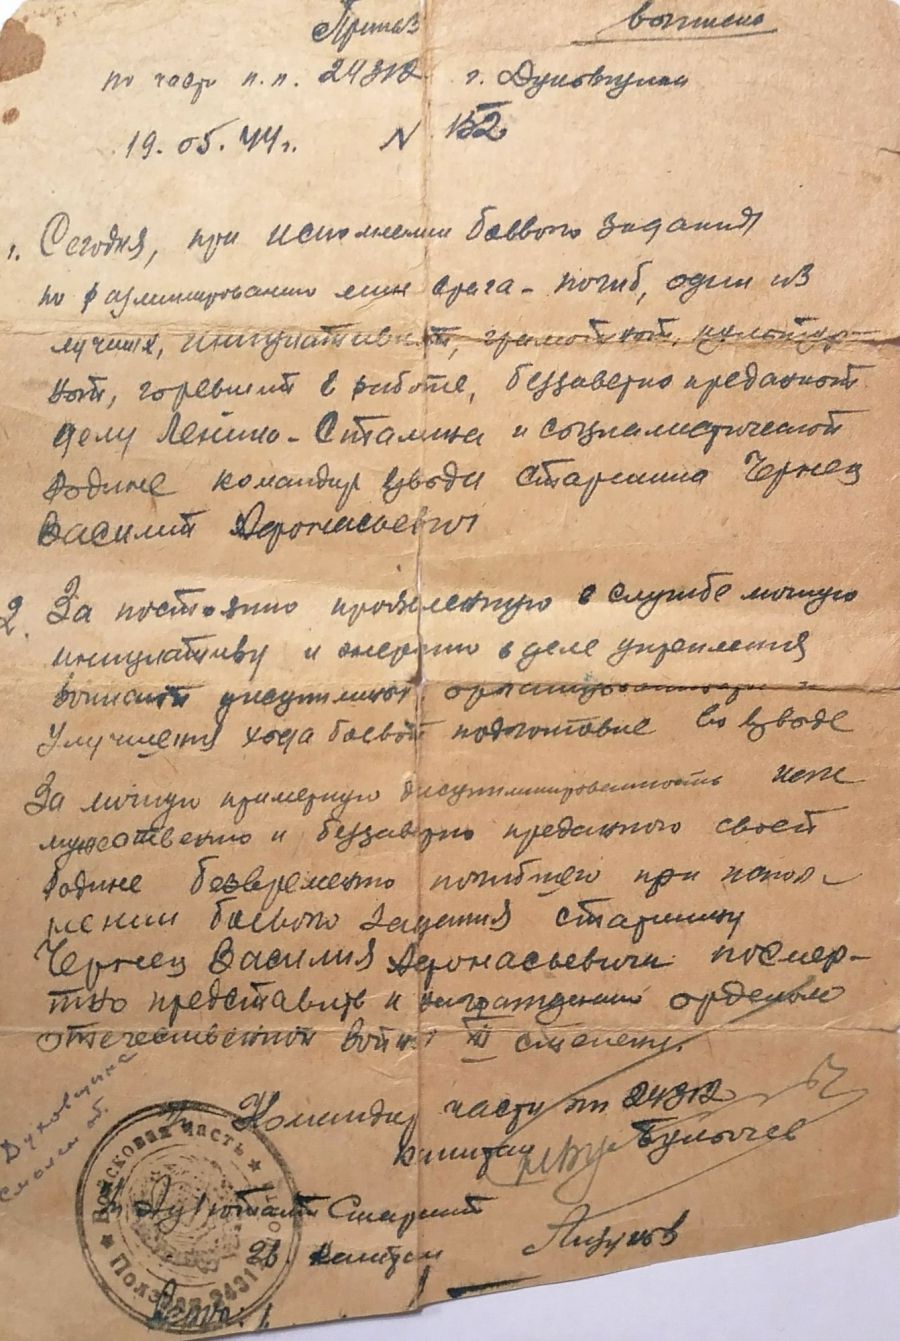 Приказ выписка
по части п.п. 24312 г. Духовщина
19.05.44г. N 152
1. Сегодня, при исполнении боевого задания
по разминированию мин врага - погиб, один из
лучших, инициативной, грамотной, культур-
ной, горевший в работе, беззаветно преданной
делу Ленина - Сталина и социалистической
родине командир взвода старшина Чернец
Василий Афонасьевич
2. За постоянно проявленную в службе личную
инициативу и энергию в деле укрепления
воинской дисциплины, организованности и
улучшения хода боевой подготовке во взводе
За личную примерную дисциплинированность
мужественно и беззаветно преданного своей
Родине безвременно погибшего при испол-
нении боевого задания старшину
Чернец Василия Афонасьевича посмер-
тно представить к награждению орденом
отечественной войны степени.
Командир части пп 24312
капитан Булычев
Духовщина
Смолен об.
Адъютант Старший
Гв. капитан
Войсковая часть
Полевая 24312